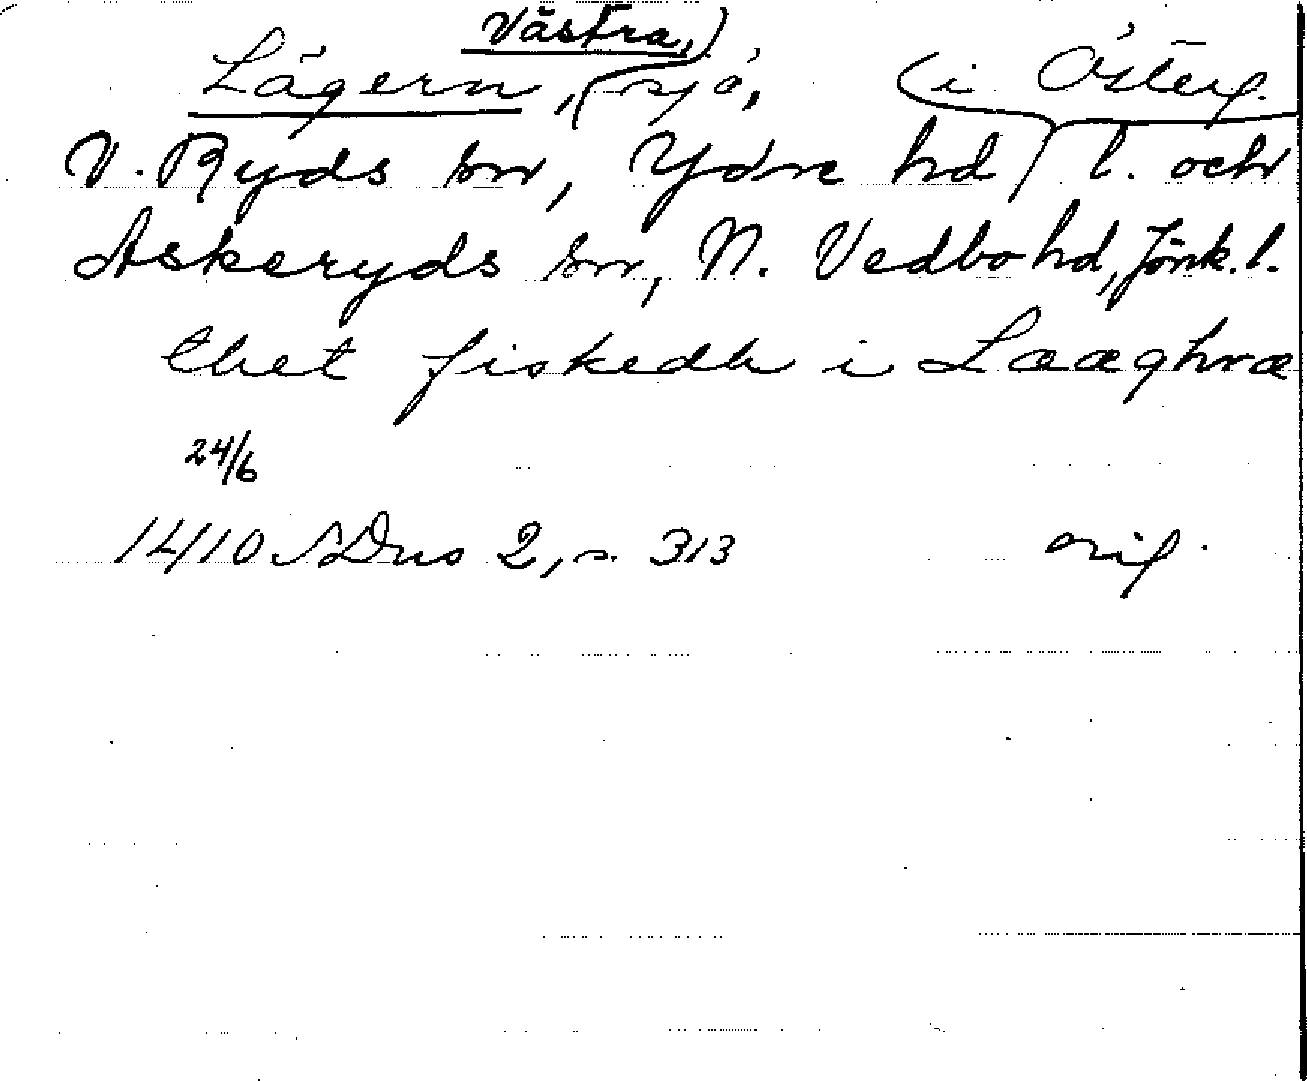 Lägern, Västra, sjö, i Österg.
V. Ryds sn, Ydre hd l. och
Askeryds sn, N. Vedbo hd, Jönk. l.
thet fiskedh i Lææghræ
24/6
1410 SDns 2, s. 313 orig.